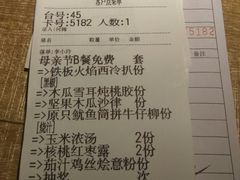 台号:45
卡号:5182 人数:1
品名 数量 单价 金额
落单:李小玲
母亲节B餐免费 套
=>铁板火焰西冷扒份
=>木瓜雪耳炖桃胶份
=>坚果木瓜沙律 份
=>原只鱿鱼筒拼牛仔柳份
=>玉米浓汤 2份
=>核桃红枣露 2份
=>茄汁鸡丝烩意粉份
=>抽奖 次
5182